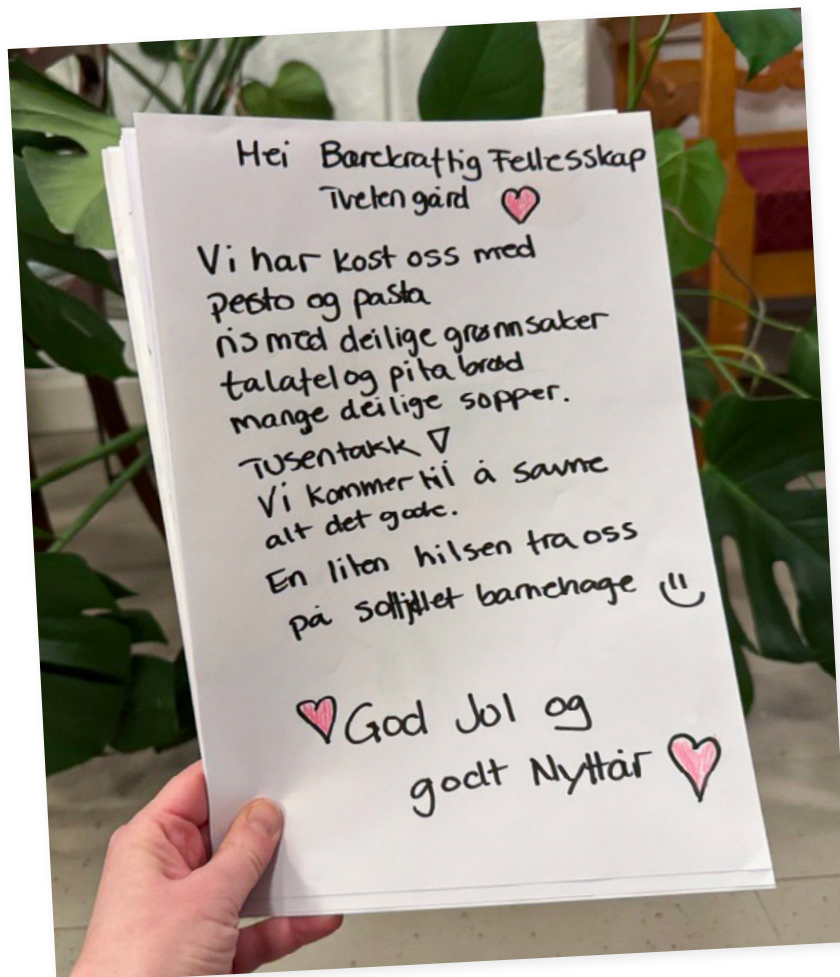 Hei Bærekraftig Fellesskap
Tveten gård
Vi har kost oss med
pesto og pasta
ris med deilige grønnsaker
falafel og pita brød
mange deilige sopper.
Tusen takk
Vi kommer til å savne
alt det gode.
En liten hilsen fra oss
på solfjellet barnehage
God Jul og
godt Nyttår